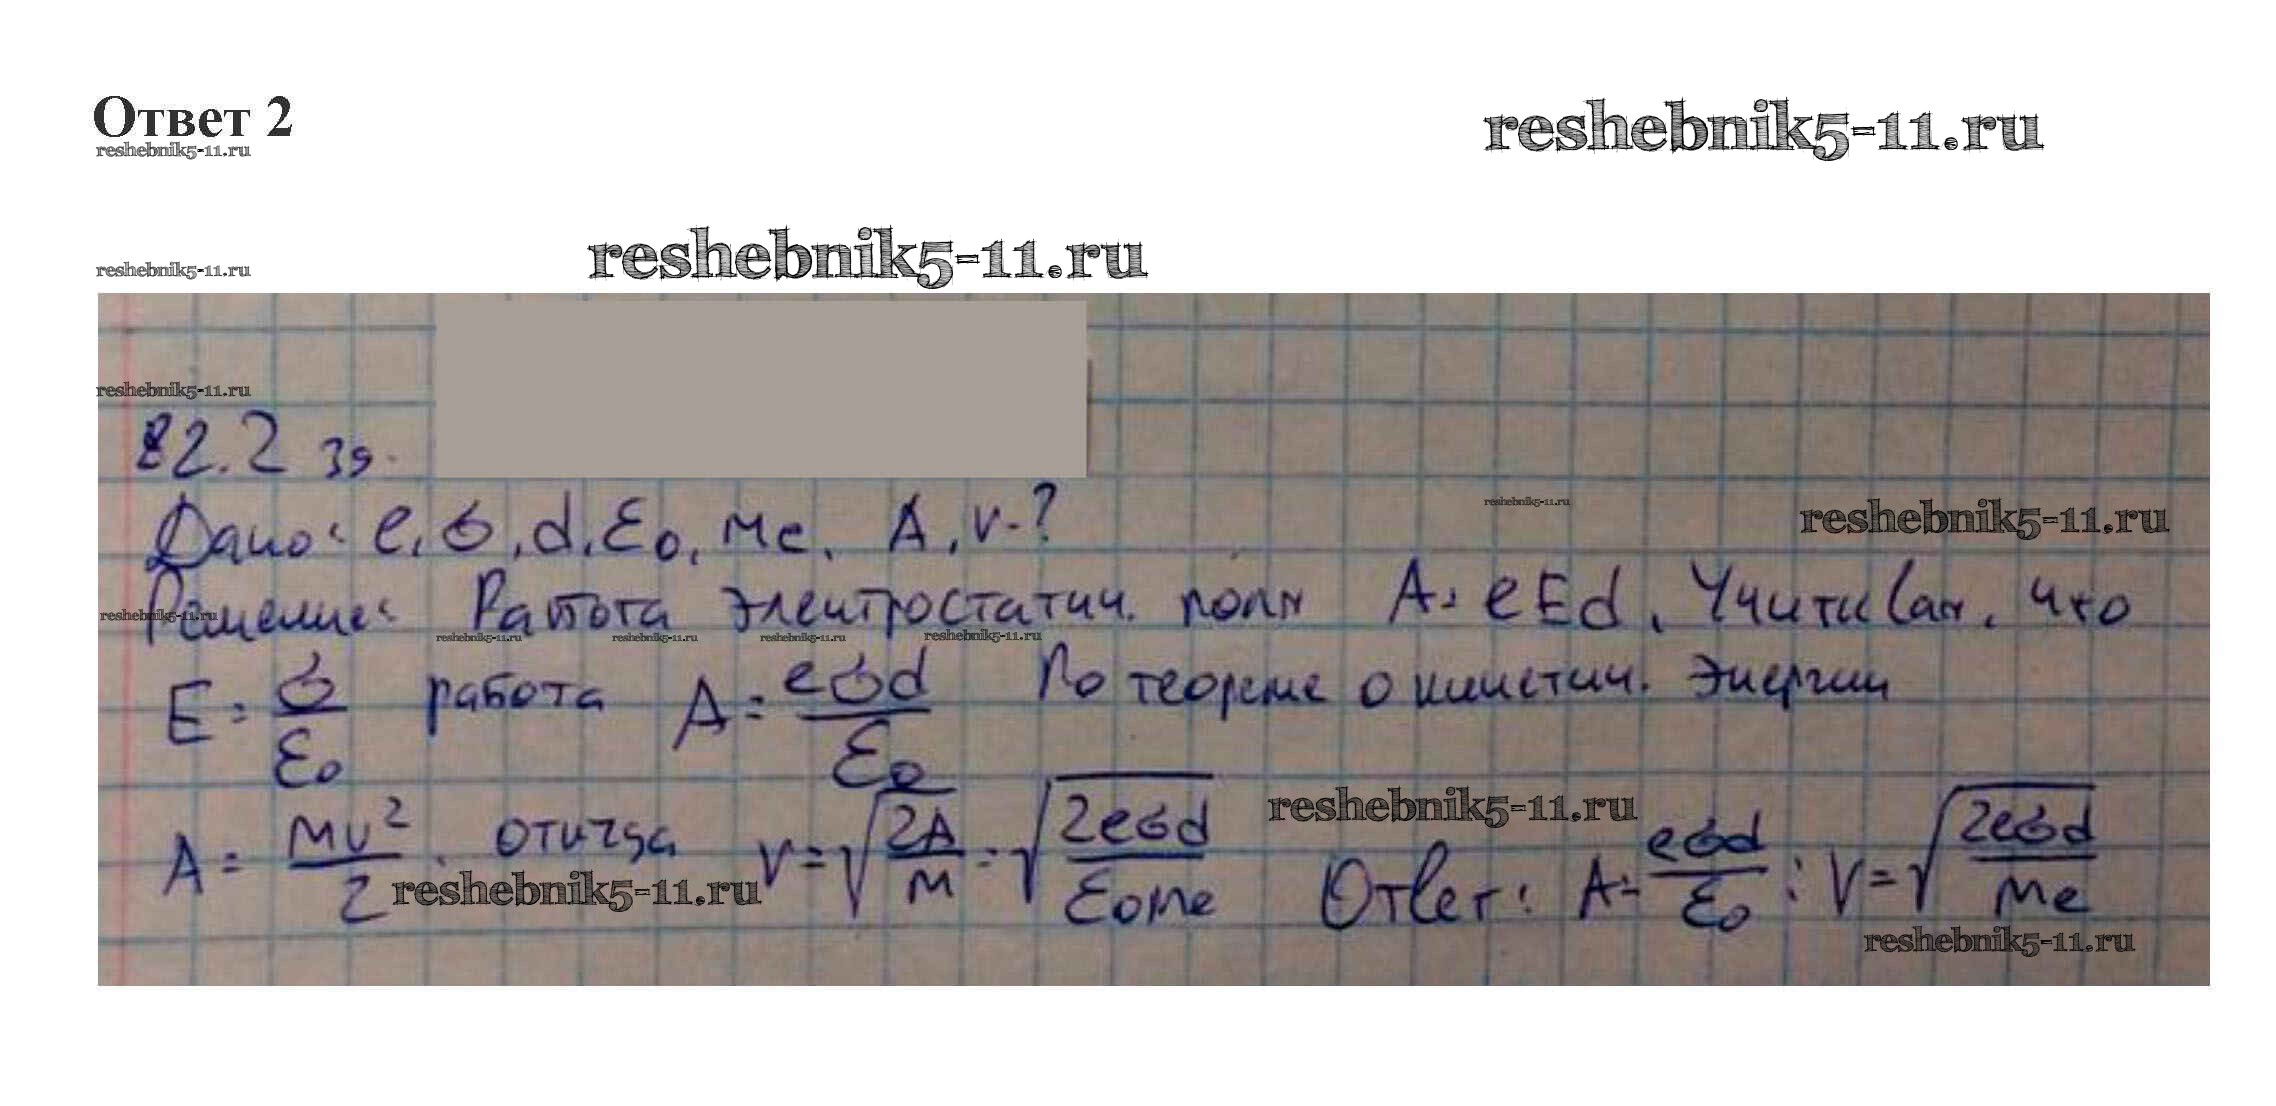 Ответ 2
reshebnik5-11.ru
reshebnik5-11.ru
reshebnik5-11.ru
reshebnik5-11.ru
reshebnik5-11.ru
82.2 
Дано: e, σ, d, ε₀, me. A, v-?
reshebnik5-11.ru
reshebnik5-11.ru
Решение: Работа электростатич. поля A = eEd. Учитывая, что
reshebnik5-11.ru
reshebnik5-11.ru
reshebnik5-11.ru
reshebnik5-11.ru
reshebnik5-11.ru
E = σ/ε₀ работа A = eσd/ε₀ По теореме о кинетич. энергии
reshebnik5-11.ru
A = mv²/2. откуда v = √(2A/m) = √(2eσd/ε₀me) Ответ: A = eσd/ε₀; V = √(2eσd/me)
reshebnik5-11.ru
reshebnik5-11.ru